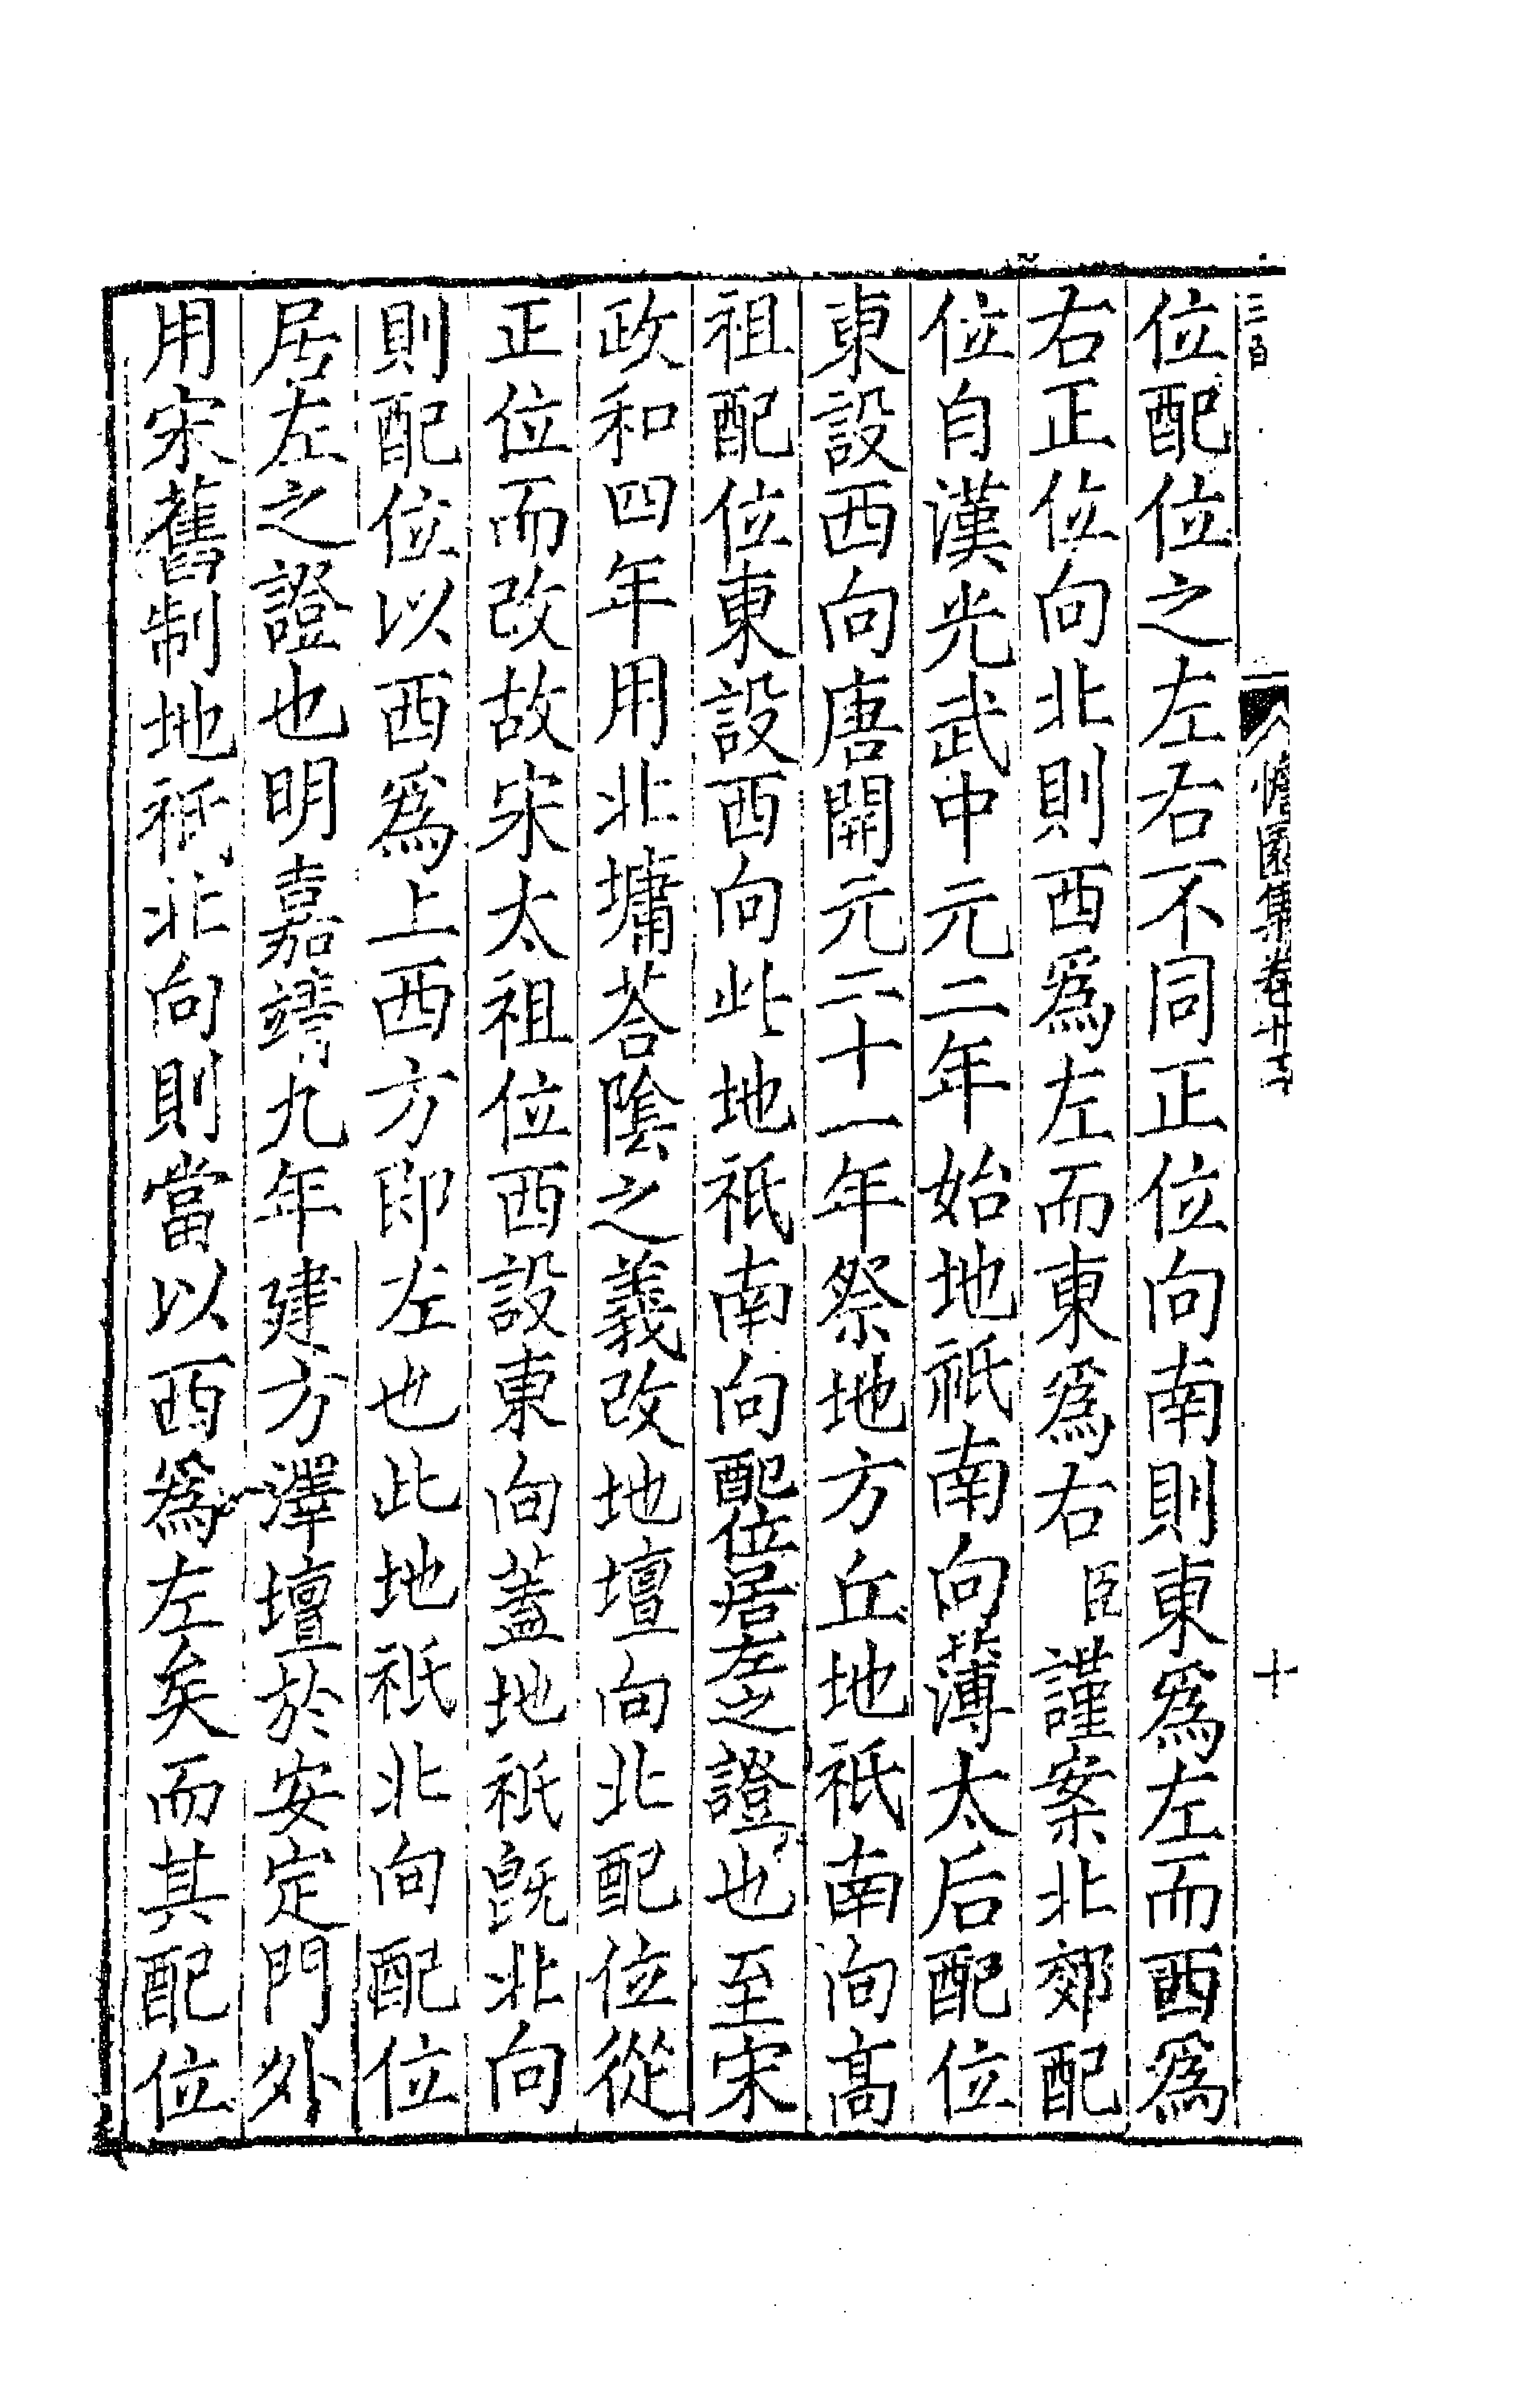 三百
憺園集卷十
位配位之左右不同正位向南則東爲左而西爲
右正位向北則西爲左而東爲右臣謹案北郊配
位自漢光武中元二年始地祇南向薄太后配位
東設西向唐開元二十一年祭地方丘地祇南向高
祖配位東設西向此地祇南向配位居左之證也至宋
政和四年用北墉荅陰之義改地壇向北配位從
正位而改故宋太祖位西設東向蓋地祇旣北向
則配位以西爲上西方卽左也此地祇北向配位
居左之證也明嘉靖九年建方澤壇於安定門外
用宋舊制地祇北向則當以西爲左矣而其配位